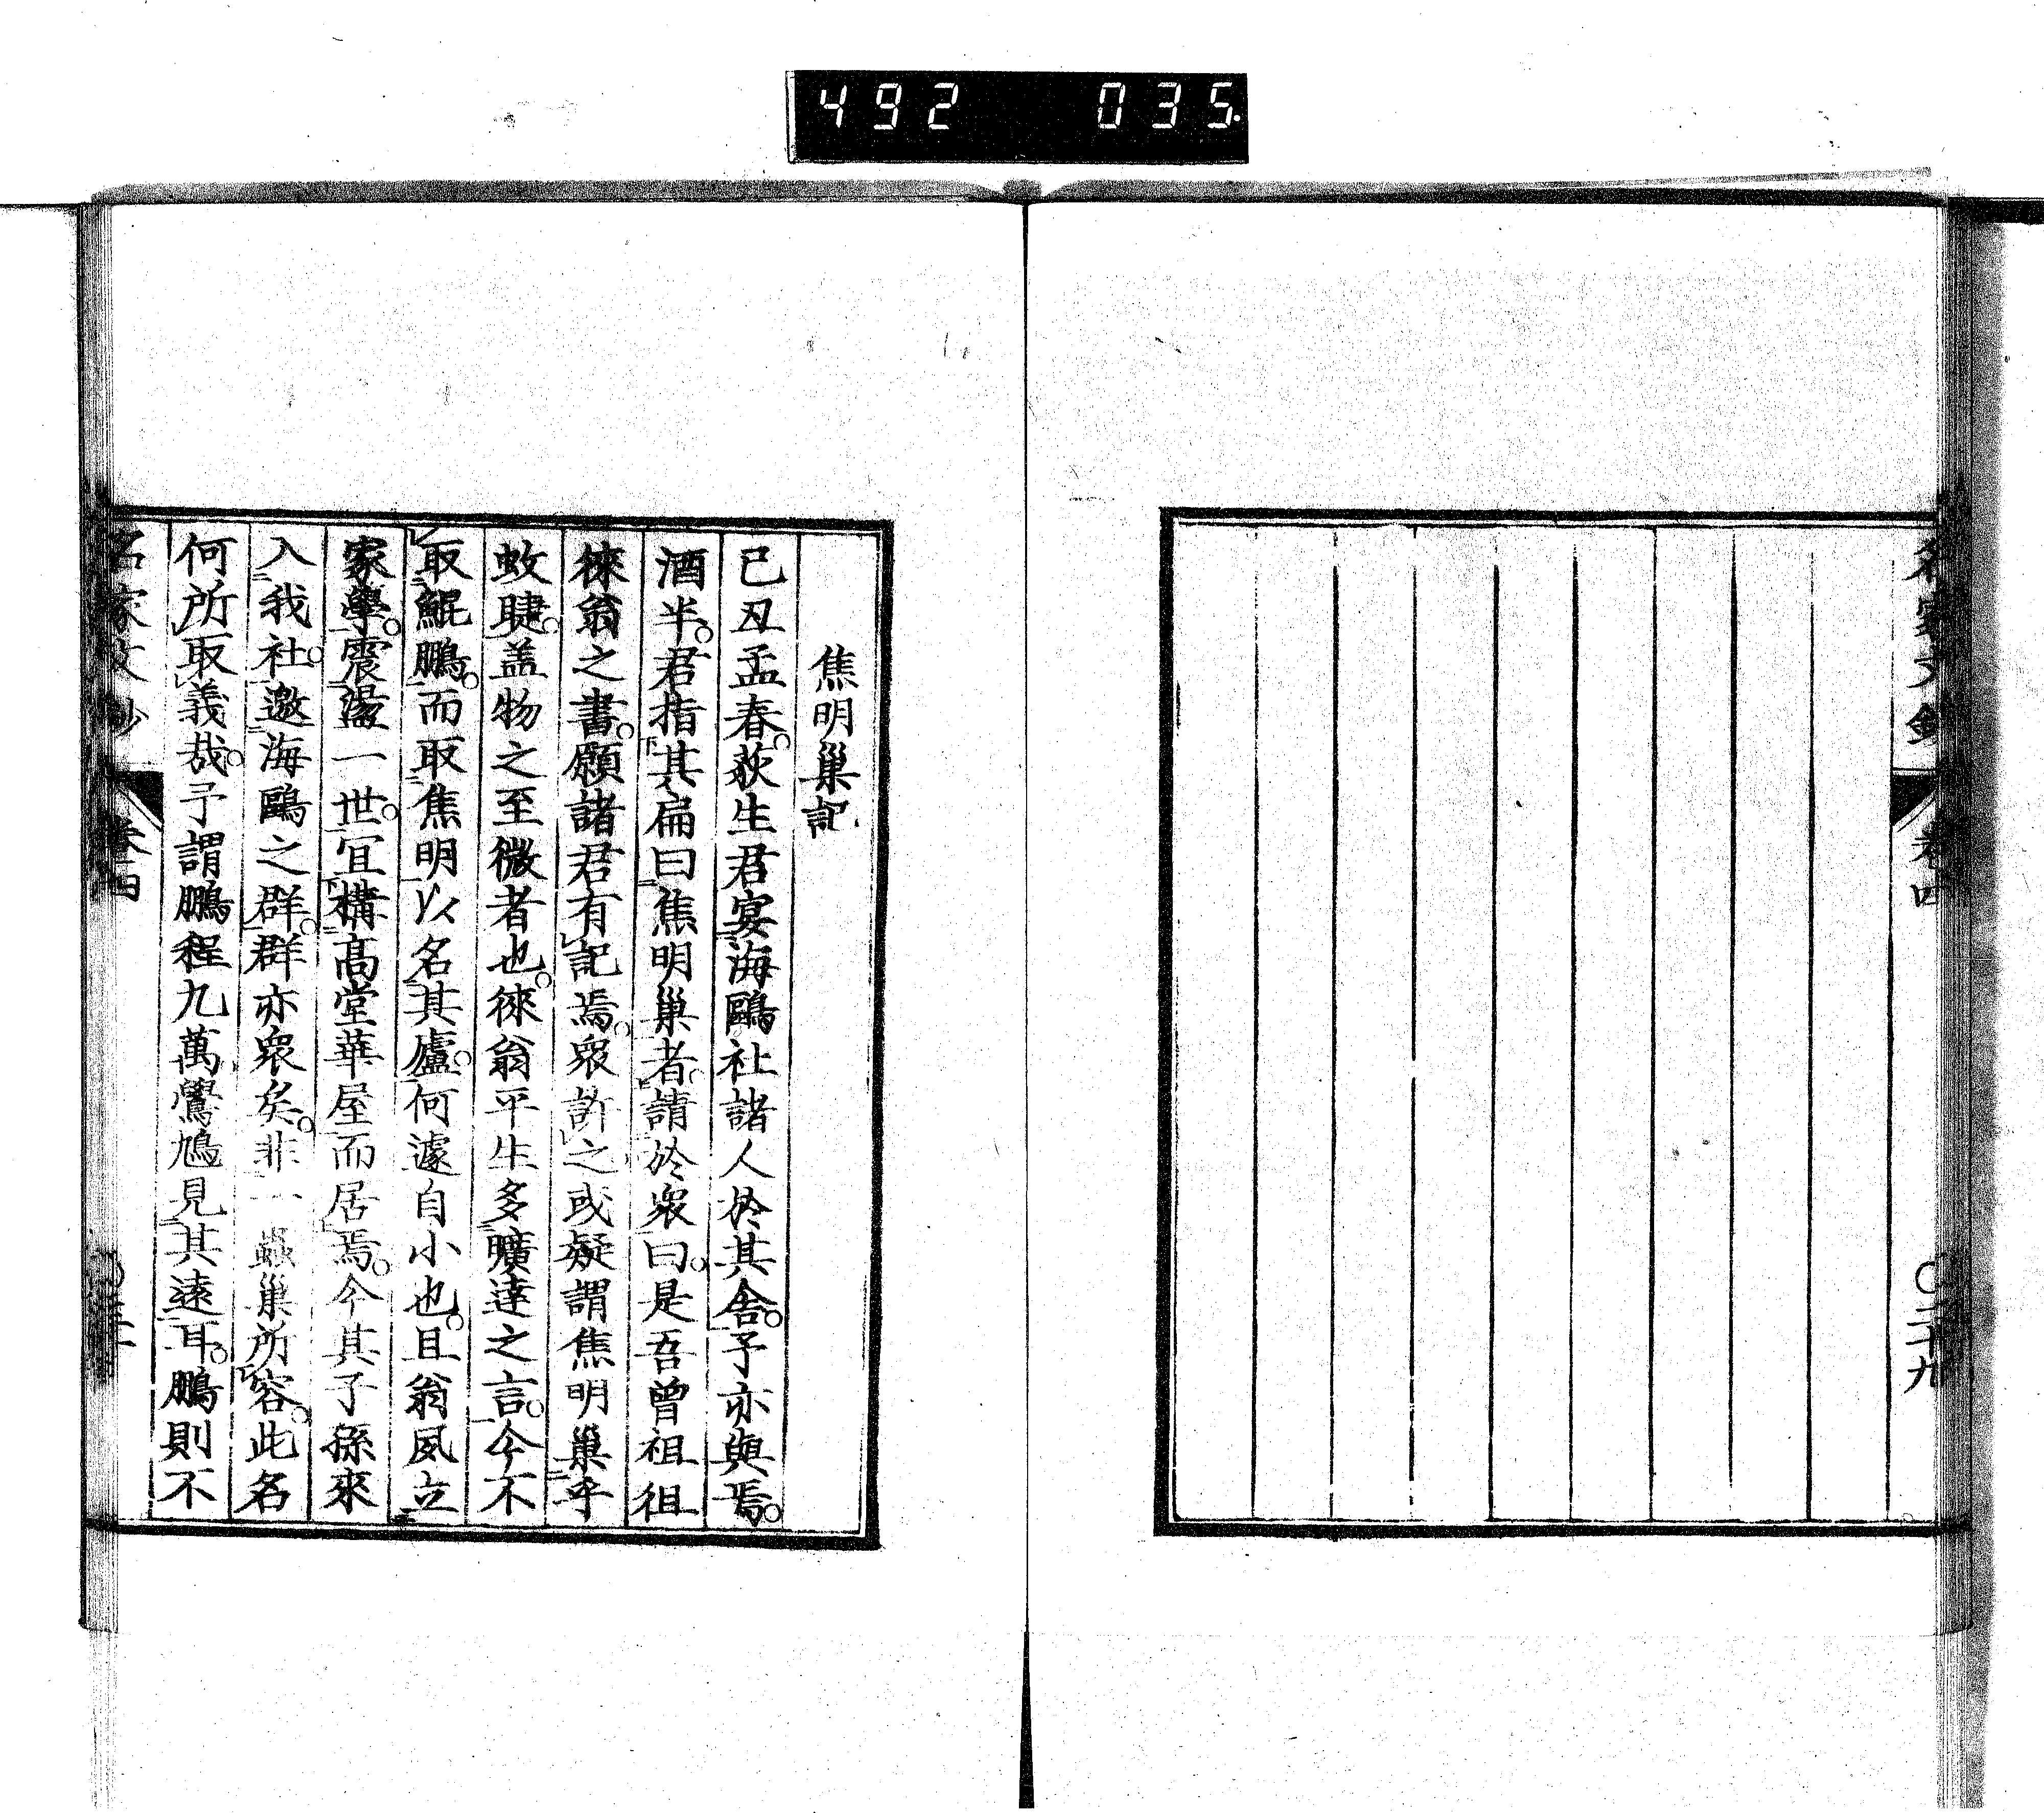 492 035
名家文鈔 卷四 〇二十九
焦明巢記
己丑孟春。荻生君宴海鷗社諸人於其舍。予亦與焉。
酒半。君指其扁曰焦明巢者。請於衆曰。是吾曾祖徂
徠翁之書。願諸君有記焉。衆許之或疑謂焦明巢乎
蚊睫。盖物之至微者也。徠翁平生多曠達之言。今不
取鯤鵬。而取焦明以名其廬。何遽自小也。且翁夙立
家學。震盪一世。宜構高堂華屋而居焉。今其子孫來
入我社。邀海鷗之群。群亦衆矣。非一蟲巢所容。此名
何所取義哉。予謂鵬程九萬鷽鳩見其遠耳。鵬則不
名家文鈔 卷四